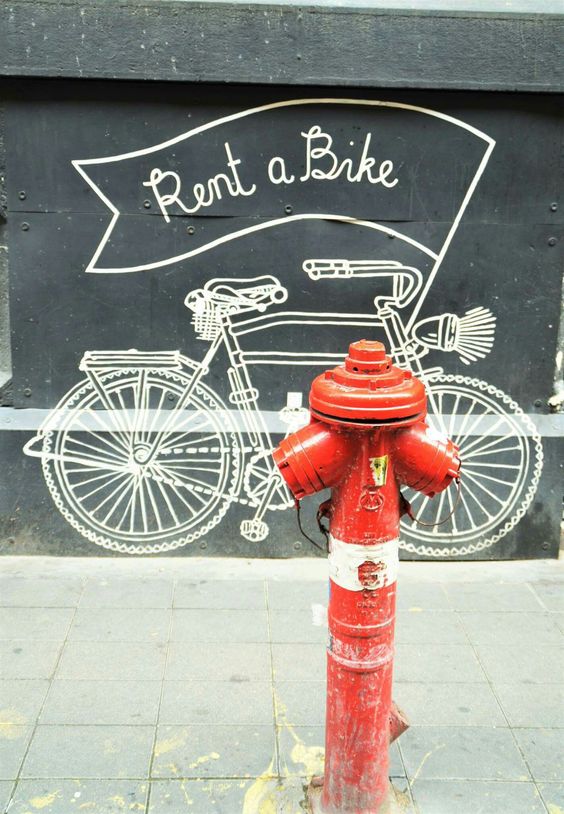 Rent a Bike